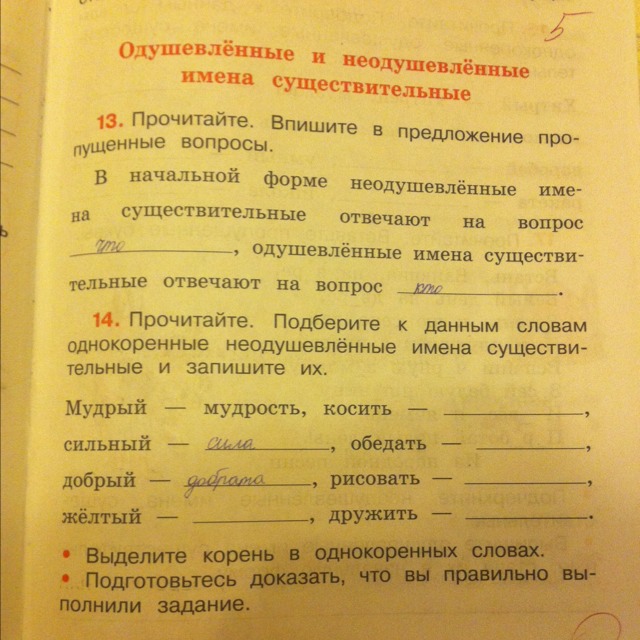 5
Одушевлённые и неодушевлённые
имена существительные
13. Прочитайте. Впишите в предложение про-
пущенные вопросы.
В начальной форме неодушевлённые име-
на существительные отвечают на вопрос
что, одушевлённые имена существи-
тельные отвечают на вопрос кто.
14. Прочитайте. Подберите к данным словам
однокоренные неодушевлённые имена существи-
тельные и запишите их.
Мудрый — мудрость, косить — ,
сильный — сила, обедать — ,
добрый — добрата, рисовать — ,
жёлтый — , дружить — .
• Выделите корень в однокоренных словах.
• Подготовьтесь доказать, что вы правильно вы-
полнили задание.